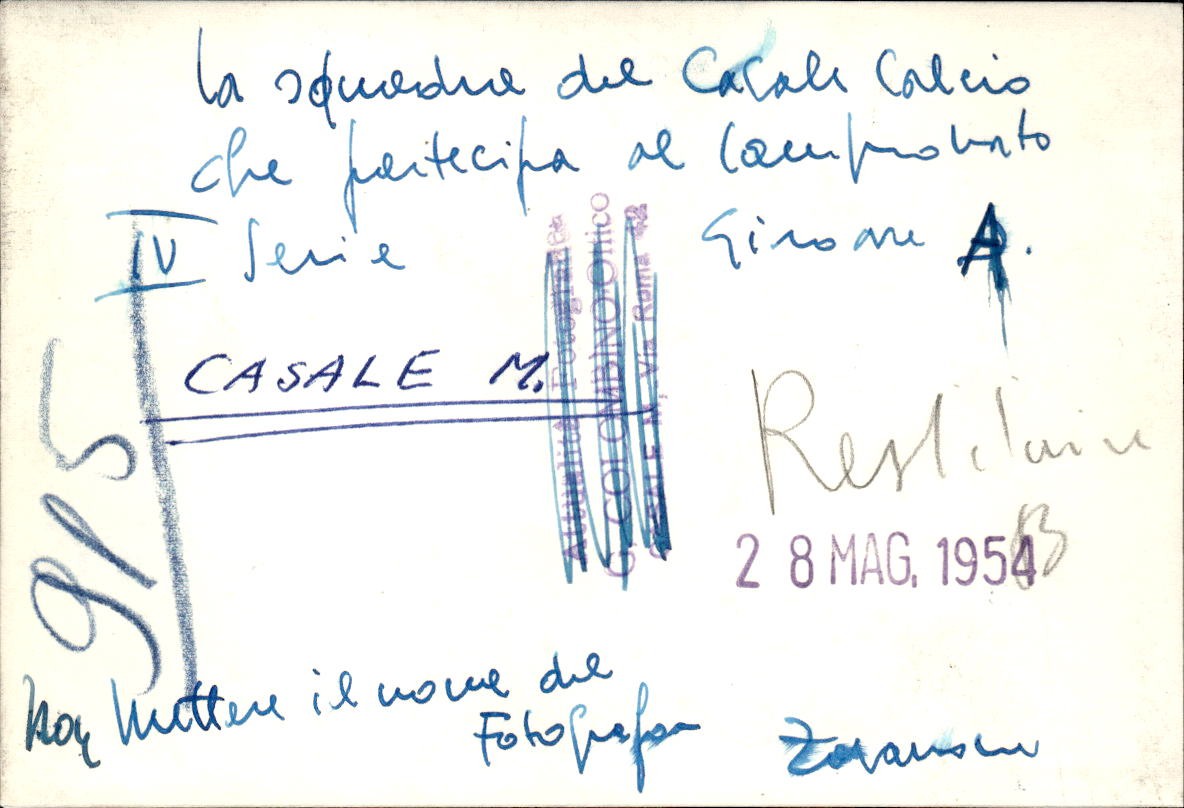 La squadra del Casale Calcio
che partecipa al Campionato
IV Serie Girone A.
CASALE M.
Attualità Fotografica
G. COLOMBINO Ottico
CASALE M. Via Roma
915
Restituire
28 MAG. 1954
Non Mettere il nome del
Fotografo